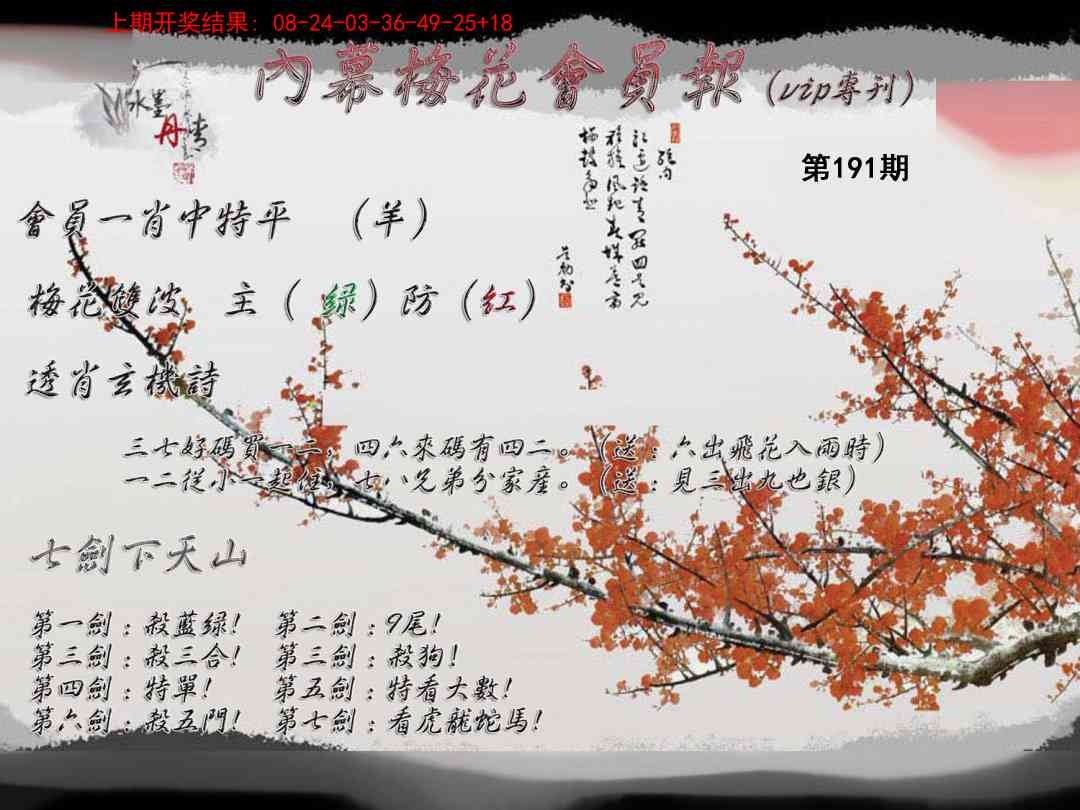 上期开奖结果: 08-24-03-36-49-25+18
內幕梅花會員報(vip專刊)
水墨
丹青
第191期
會員一肖中特平 (羊)
梅花雙波 主(綠)防(紅)
透肖玄機詩
三七好碼買一二，四六來碼有四二。(送:六出飛花入雨時)
一二從小一起住，七八兄弟分家產。(送:見三出九也銀)
七劍下天山
第一劍:殺藍绿! 第二劍:9尾!
第三劍:殺三合! 第三劍:殺狗!
第四劍:特單! 第五劍:特看大數!
第六劍:殺五門! 第七劍:看虎龍蛇馬!